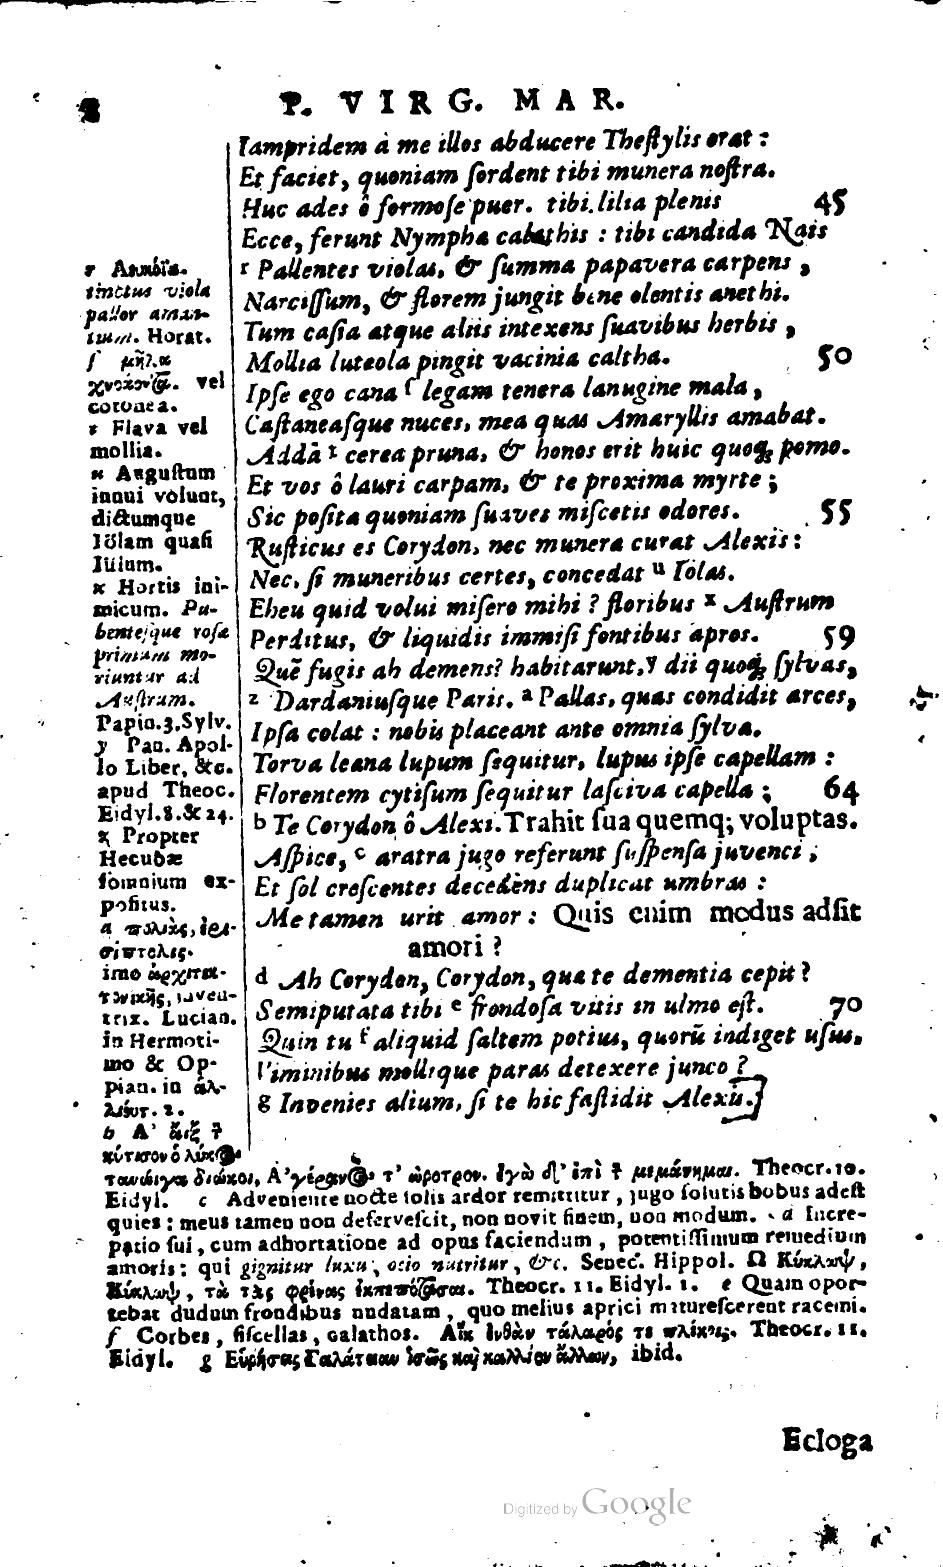 8 P. VIRG. MAR.
Iampridem à me illos abducere Theſtylis orat :
Et faciet, quoniam ſordent tibi munera noſtra.
Huc ades ô formoſe puer. tibi lilia plenis 45
Ecce, ferunt Nympha calathis : tibi candida Nais
r Pallentes violas, & ſumma papavera carpens ,
Narciſſum, & florem jungit bene olentis anethi.
Tum caſia atque aliis intexens ſuavibus herbis ,
Mollia luteola pingit vacinia caltha. 50
Ipſe ego cana ſ legam tenera lanugine mala ,
Caſtaneaſque nuces, mea quas Amaryllis amabat.
Addā t cerea pruna, & honos erit huic quoq; pomo.
Et vos ô lauri carpam, & te proxima myrte ;
Sic poſita quoniam ſuaves miſcetis odores. 55
Ruſticus es Corydon, nec munera curat Alexis :
Nec, ſi muneribus certes, concedat u Iolas.
Eheu quid volui miſero mihi ? floribus x Auſtrum
Perditus, & liquidis immiſi fontibus apros. 59
Quē fugis ah demens? habitarunt. y dii quoq; ſylvas,
z Dardaniuſque Paris. a Pallas, quas condidit arces,
Ipſa colat : nobis placeant ante omnia ſylva.
Torva leana lupum ſequitur, lupus ipſe capellam :
Florentem cytiſum ſequitur laſciva capella ; 64
b Te Corydon ô Alexi. Trahit ſua quemq; voluptas.
Aſpice, c aratra jugo referunt ſuſpenſa juvenci ;
Et ſol creſcentes decedēns duplicat umbras :
Me tamen urit amor : Quis enim modus adſit
amori ?
d Ah Corydon, Corydon, qua te dementia cepit ?
Semiputata tibi e frondoſa vitis in ulmo eſt. 70
Quin tu f aliquid ſaltem potius, quorū indiget uſus,
Viminibus mollique paras detexere junco ?
g Invenies alium, ſi te hic faſtidit Alexis.]
r
tinctus viola
pallor aman-
tium. Horat.
ſ vel
cotonea.
t Flava vel
mollia.
u Anguſtum
innui volunt,
dictumque
Iölam quaſi
x Hortis ini-
micum. Pu-
benteſque roſæ
primum mo-
riuntur ad
Auſtrum.
Papin.3.Sylv.
y Pan. Apol-
lo Liber, &c.
apud Theoc.
Eidyl.8.&24.
z Propter
Hecubæ
ſomnium ex-
poſitus.
a
imo
inven-
trix. Lucian.
in Hermoti-
mo & Op-
pian. in ἁλ-
b
Theocr.10.
Eidyl. c Adveniente nocte ſolis ardor remittitur , jugo ſolutis bobus adeſt
quies : meus tamen non deferveſcit, non novit finem, non modum. d Incre-
patio ſui , cum adhortatione ad opus faciendum , potentiſſimum remedium
amoris : qui gignitur luxu , otio nutritur , &c. Senec. Hippol. Ω Κύκλωψ ,
Κύκλωψ , Theocr. 11. Eidyl. 1. e Quam opor-
tebat dudum frondibus nudatam , quo melius aprici matureſcerent racemi.
f Corbes , fiſcellas , calathos. Theocr. 11.
Eidyl. g ibid.
Ecloga
Digitized by Google